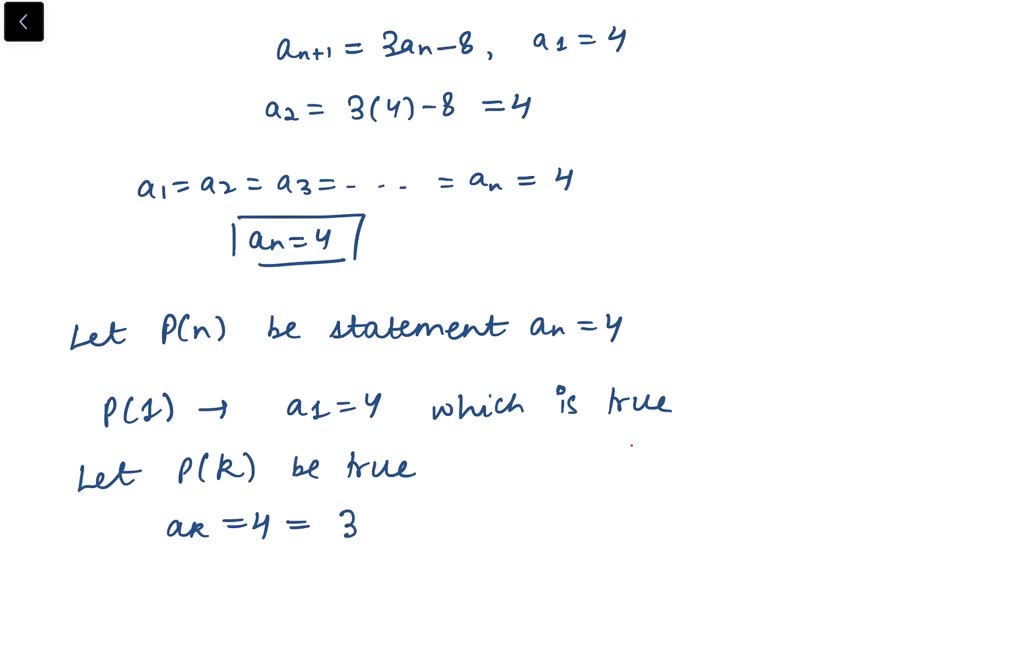 an+1 = 3an-8, a1 = 4
a2 = 3(4)-8 = 4
a1 = a2 = a3 = - . . . = an = 4
an = 4
Let P(n) be statement an = 4
P(1) → a1 = 4 which is true
Let P(k) be true
ak = 4 = 3